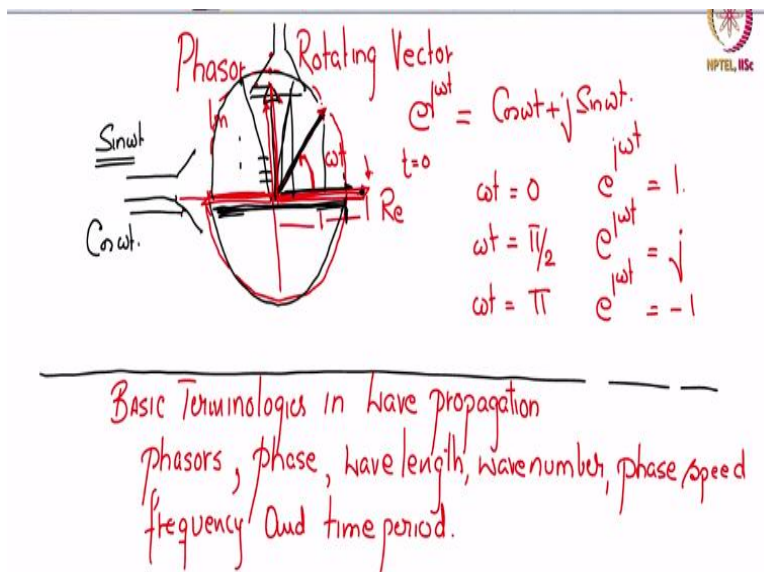 Phasor Rotating Vector
NPTEL, IISc
Im
e^jωt = Cosωt + j Sinωt.
Sinωt
ωt
t=0
ωt = 0 e^jωt = 1.
Cosωt.
1 Re
ωt = π/2 e^jωt = j
ωt = π e^jωt = -1
BASIC Terminologies in wave propagation
phasors, phase, wavelength, wavenumber, phase speed
frequency and time period.